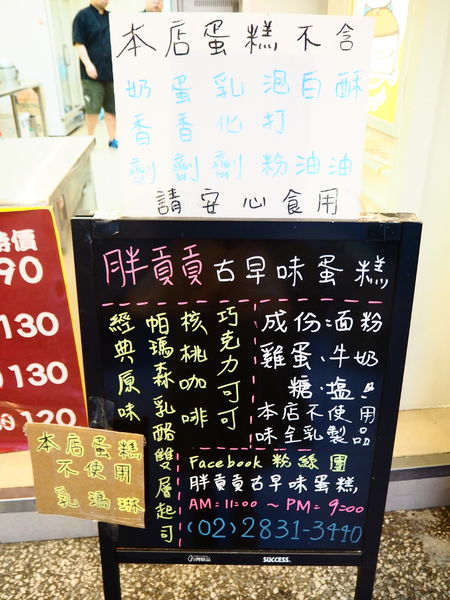 本店蛋糕不含
奶香劑
蛋香劑
乳化劑
泡打粉
白油
酥油
請安心食用
特價
90
130
130
120
胖貢貢古早味蛋糕
巧克力可可
核桃咖啡
帕瑪森乳酪雙層起司
經典原味
成份:面粉
雞蛋、牛奶
糖、塩
本店不使用
味全乳製品
本店蛋糕
不使用
乳瑪琳
Facebook 粉絲團
胖貢貢古早味蛋糕
AM=11:00 ~ PM=9:00
(02)2831-3440
SUCCESS